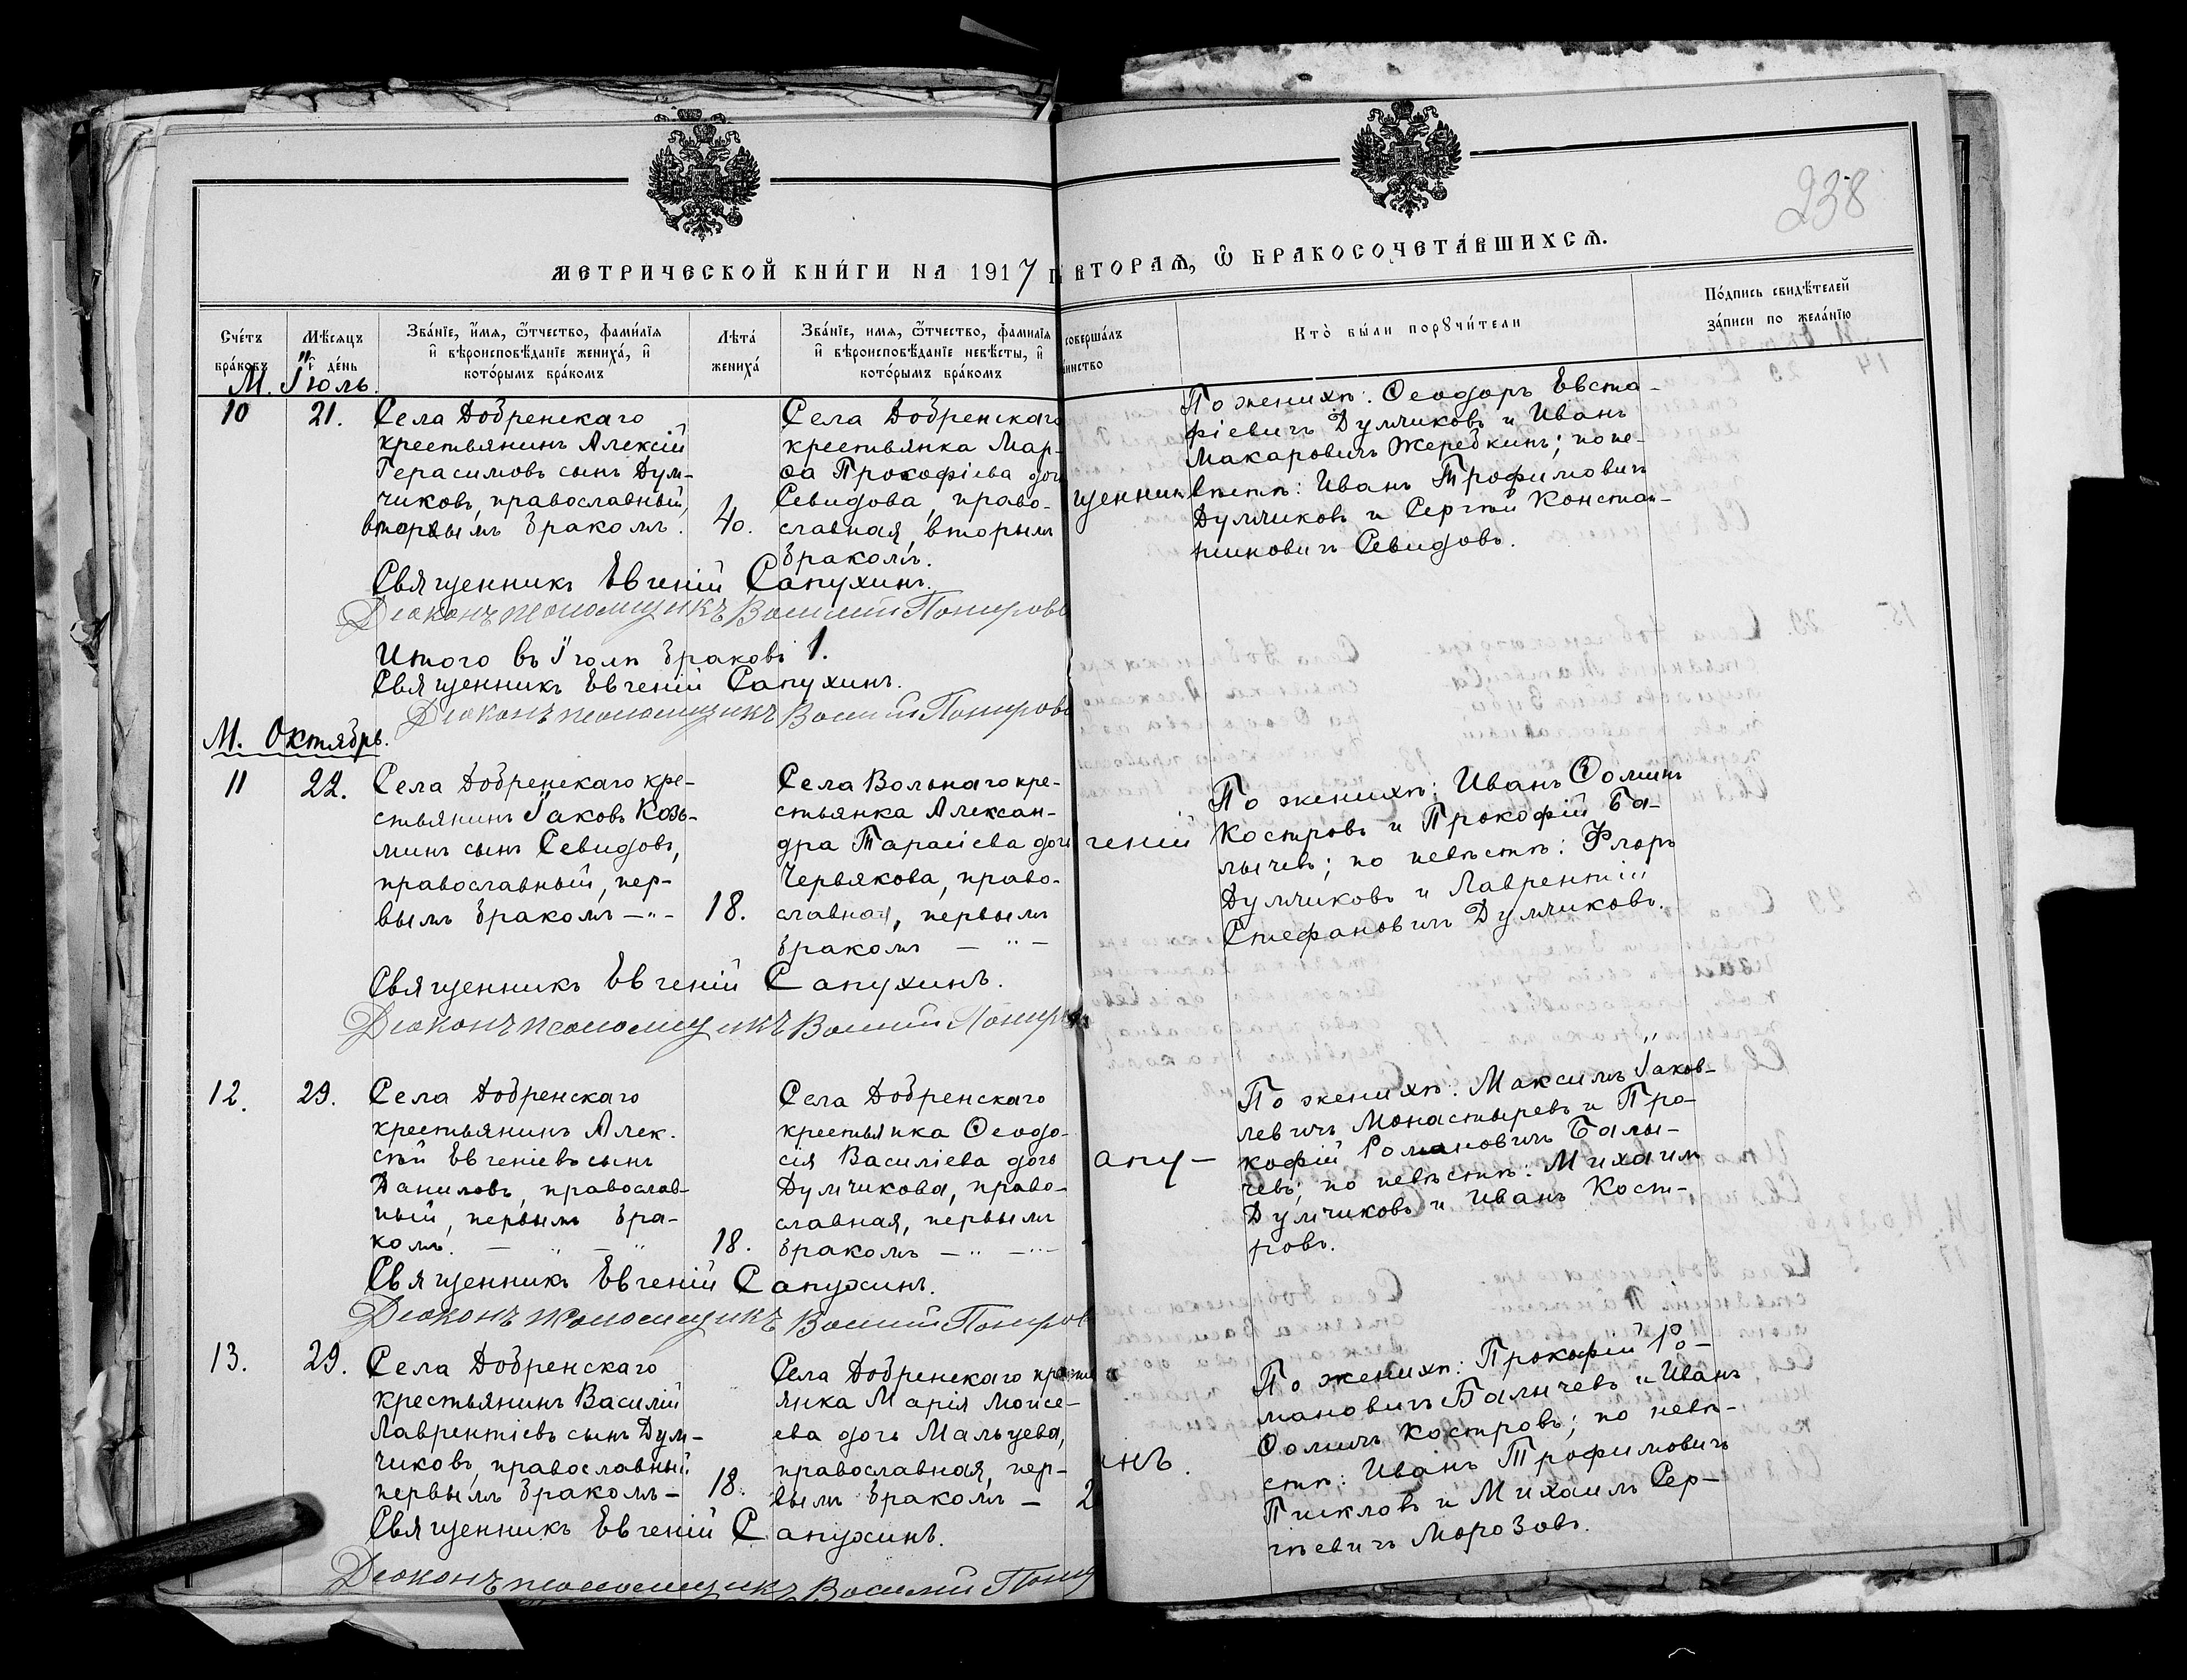 238
МЕТРИЧЕСКОЙ КНИ́ГИ НА 1917 ВТОРАѦ, Ѡ҆ БРАКОСОЧЕТА́ВШИХСѦ.
Сче́тъ бра́ковъ
Мѣ́сяцъ и҆ де́нь
Зва́нїе, и҆́мя, ѻ҆́тчество, фами́лїя и҆ вѣроисповѣ́данїе жениха́, и҆ кото́рымъ бра́комъ
Лѣта̀ жениха́
Зва́нїе, имя, ѻ҆́тчество, фамилїя и҆ вѣроисповѣ́данїе невѣ́сты, и҆ кото́рымъ бра́комъ
соверша́лъ
инство
Кто̀ бы́ли порꙋчи́тели
По́дпись свидѣ́телей за́писи по жела́нїю
М. Іюль.
10
21.
Села Добренскаго
крестьянинъ Алексій
Герасимовъ сынъ Дум-
чиковъ, православный,
вторымъ бракомъ.
40.
Села Добренскаго
крестьянка Мар-
ѳа Прокофіева дочь
Севидова, право-
славная, вторымъ
бракомъ.
щенник
По женихѣ: Ѳеодоръ Евста-
фіевичъ Думчиковъ и Иванъ
Макаровичъ Жеребкинъ; по не-
вѣстѣ: Иванъ Трофимовичъ
Думчиковъ и Сергѣй Констан-
тиновичъ Севидовъ.
Священникъ Евгеній Сапухинъ.
Діаконъ псаломщикъ Василій Понировс
Итого въ Іюлѣ браковъ 1.
Священникъ Евгеній Сапухинъ.
Діаконъ псаломщикъ Василій Понировс
М. Октябрь.
11
22.
Села Добренскаго кре-
стьянинъ Іаковъ Козь-
минъ сынъ Севидовъ,
православный, пер-
вымъ бракомъ —"—
18.
Села Вольнаго кре-
стьянка Алексан-
дра Тарасіева дочь
Червякова, право-
славная, первымъ
бракомъ — " —
геній
По женихѣ: Иванъ Ѳоминъ
Костровъ и Прокофій Ба-
лычевъ; по невѣстѣ: Флоръ
Думчиковъ и Лаврентій
Стефановичъ Думчиковъ.
Священникъ Евгеній Сапухинъ.
Діаконъ псаломщикъ Василій Понир
12.
29.
Села Добренскаго
крестьянинъ Алек-
сѣй Евгеніевъ сынъ
Даниловъ, православ-
ный, первымъ бра-
комъ. — " — "
18.
Села Добренскаго
крестьянка Ѳеодо-
сія Василіева дочь
Думчикова, право-
славная, первымъ
бракомъ — " — " —
апу-
По женихѣ: Максимъ Іаков-
левичъ Монастыревъ и Про-
кофій Романовичъ Балы-
чевъ; по невѣстѣ: Михаилъ
Думчиковъ и Иванъ Кост-
ровъ.
Священникъ Евгеній Сапухинъ.
Діаконъ псаломщикъ Василій Пониров
13.
29.
Села Добренскаго
крестьянинъ Василій
Лаврентіевъ сынъ Дум-
чиковъ, православный
первымъ бракомъ —
18.
Села Добренскаго крестья
янка Марія Моисе-
ева дочь Мальцева,
православная, пер-
вымъ бракомъ —
2
инъ.
По женихѣ: Прокофій Ро-
мановичъ Балычевъ и Иванъ
Ѳомичъ Костровъ; по невѣ-
стѣ: Иванъ Трофимовичъ
и Михаилъ Сер-
гѣевичъ Морозовъ.
Священникъ Евгеній Сапухинъ.
Діаконъ псаломщикъ Василій Пони